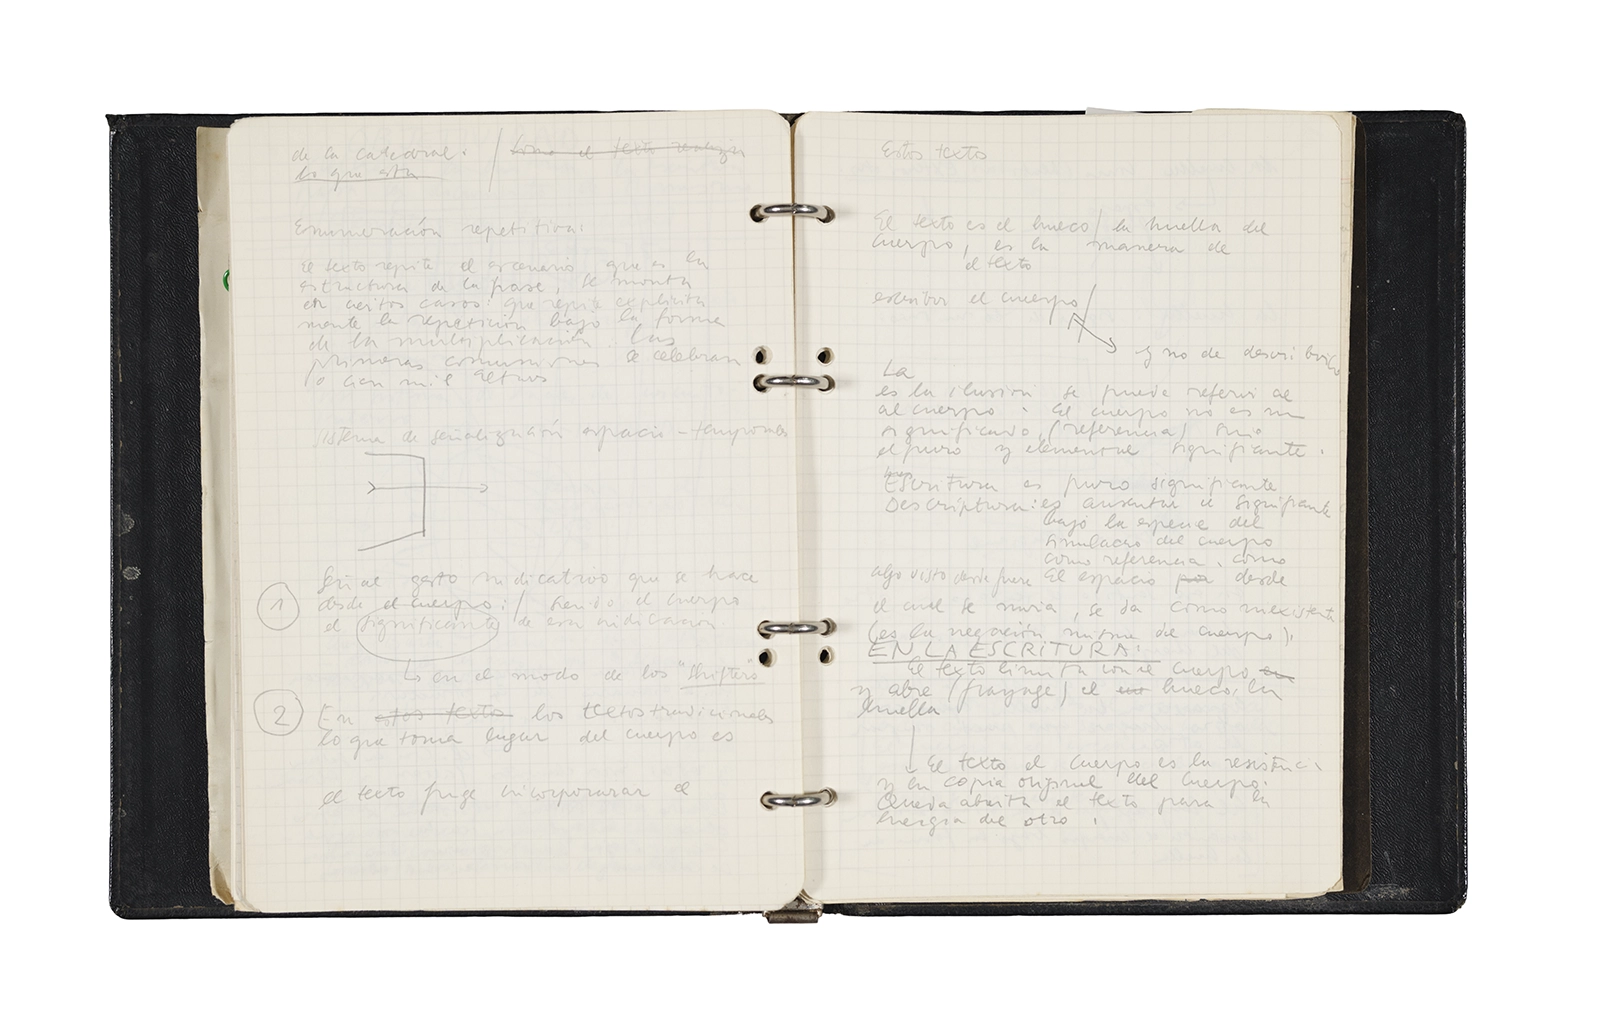 de la catedral. / como el texto
lo que esta
Enumeración repetitiva:
El texto repite el escenario que es la
estructura de la frase, se monta
en ciertos casos: que repite explicita
mente la repetición bajo la forma
de la multiplicación. Las
primeras comuniones se celebran
o cien mil
sistema de señalización espacio-temporales
1
Señal gesto indicativo que se hace
desde el cuerpo: / siendo el cuerpo
el significante de esa indicación.
en el modo de los "Shifters"
2
En estos textos los textos tradicionales
lo que toma lugar del cuerpo es
el texto finge incorporar el
Estos textos
El texto es el hueco / la huella del
cuerpo, es la manera de
el texto
escribir el cuerpo /
y no de describirlo
La
es la ilusión se puede referir al
al cuerpo. El cuerpo no es un
significado, (referencia) sino
el puro y elemental significante.
Escritura es puro significante
Descriptura: es ausentar el significante
bajo la especie del
simulacro del cuerpo
como referencia, como
algo visto desde fuera El espacio por desde
el cual se mira, se da como inexistente
(es la negación misma de cuerpo).
EN LA ESCRITURA:
El texto limita con el cuerpo en
y abre (frayage) el hueco, la
huella
El texto el cuerpo es la resistencia
y la copia original del cuerpo.
Queda abierto el texto para la
energia del otro.